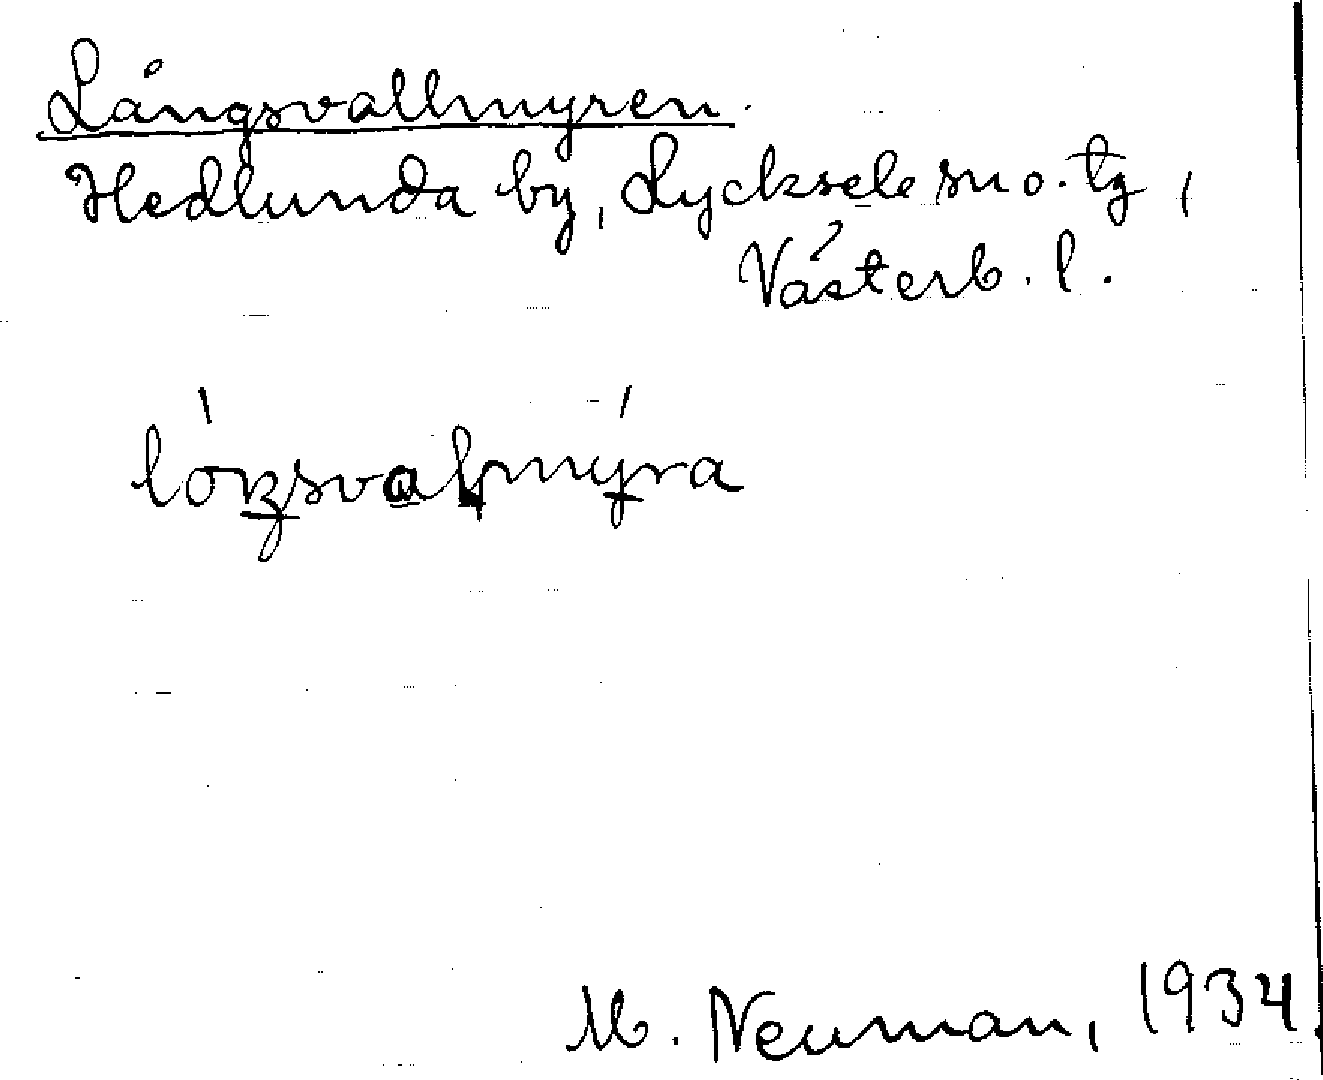 Långsvallmyren.
Hedlunda by, Lycksele sn o. tg,
Västerb. l.
M. Neuman, 1934.